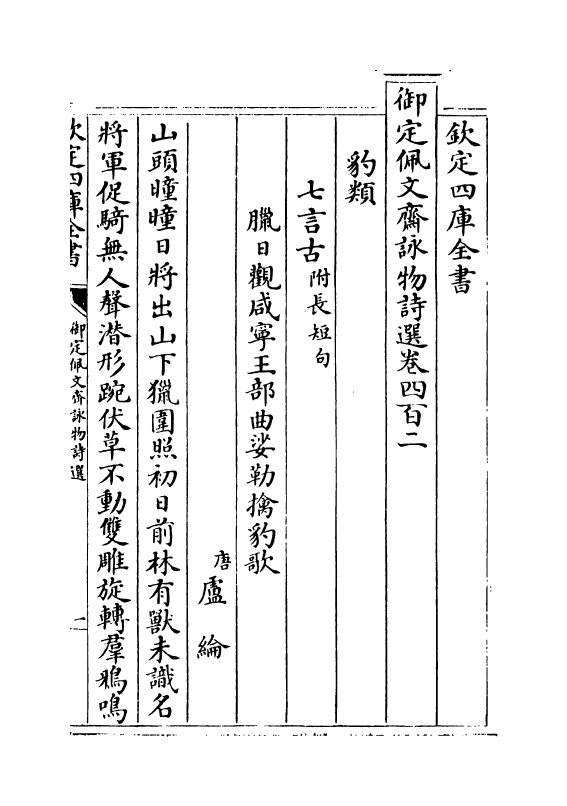 欽定四庫全書
御定佩文齋詠物詩選卷四百二
豹類
七言古附長短句
臘日觀咸寧王部曲娑勒擒豹歌
唐盧綸
山頭曈曈日將出山下獵圍照初日前林有獸未識名
將軍促騎無人聲潛形踠伏草不動雙雕旋轉羣鴉鳴
欽定四庫全書
御定佩文齋詠物詩選